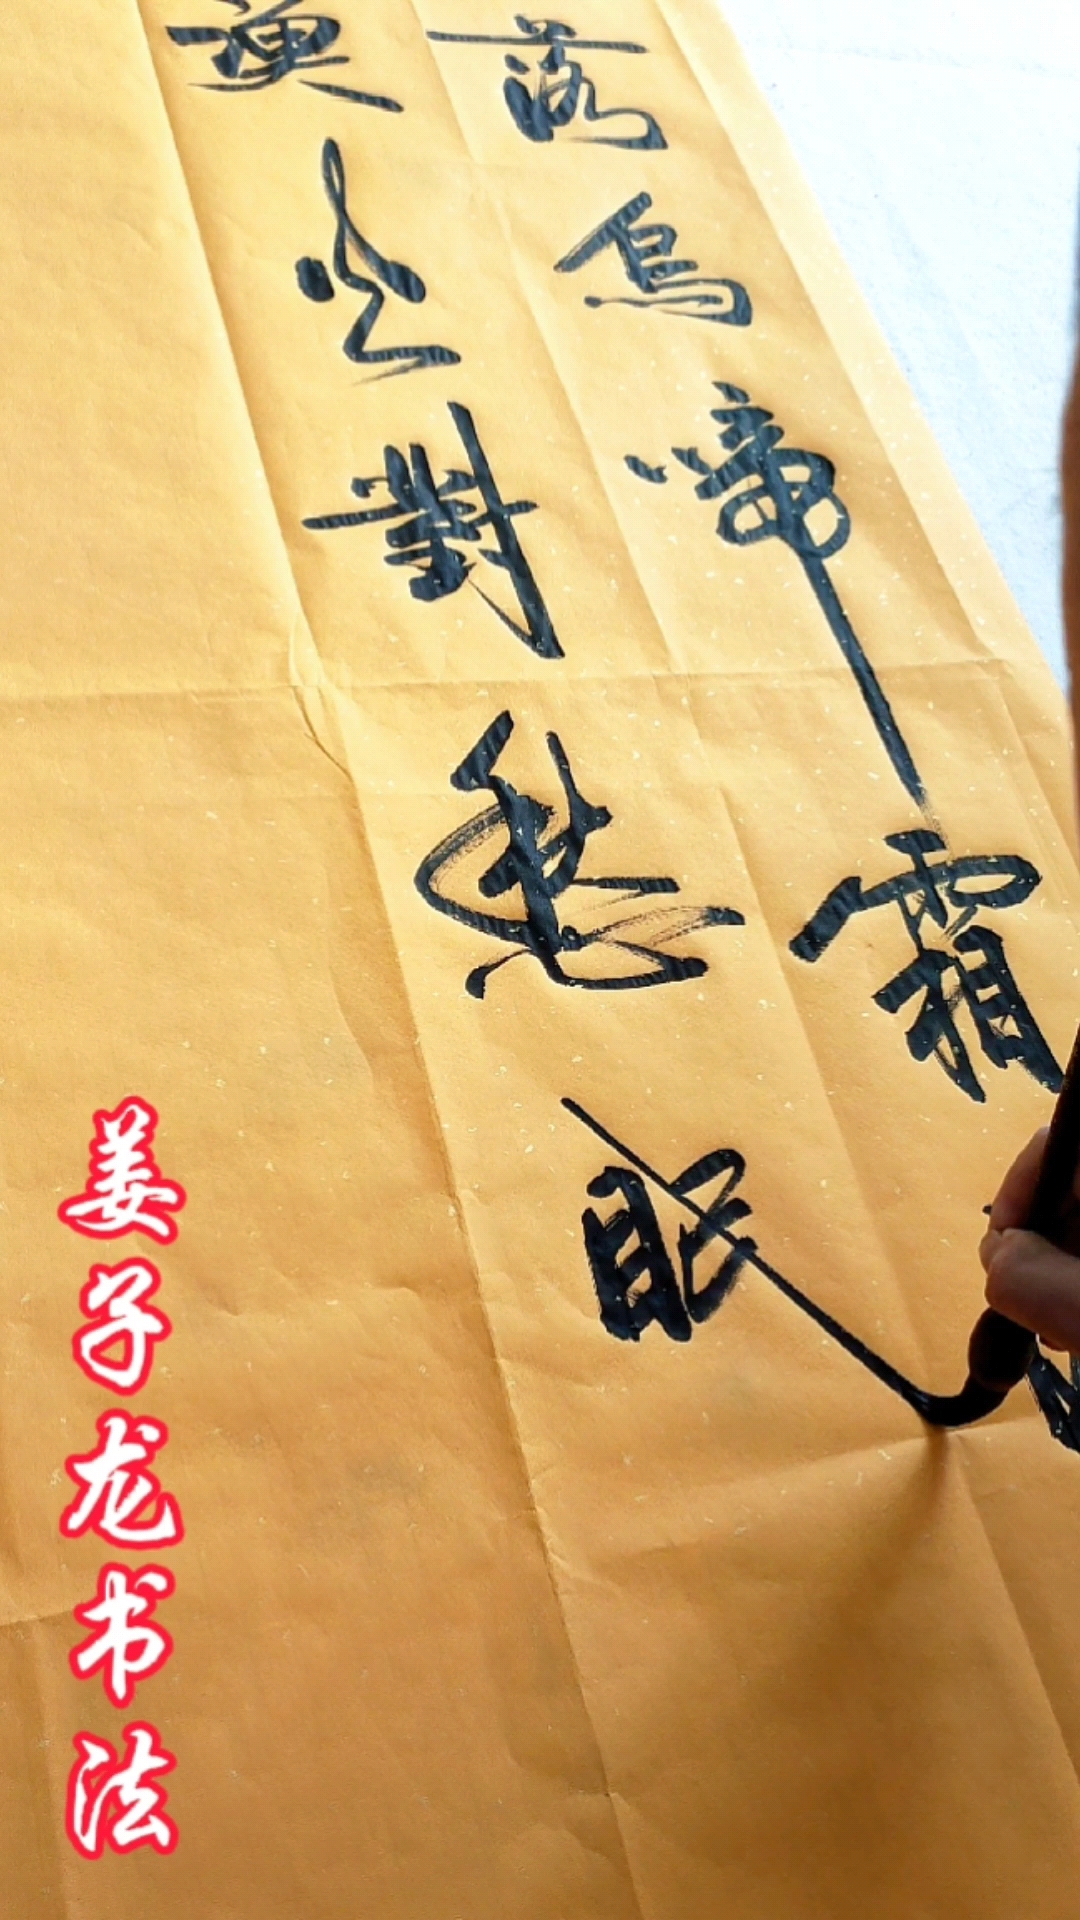 落烏啼霜
漁火對愁眠
姜子龙书法